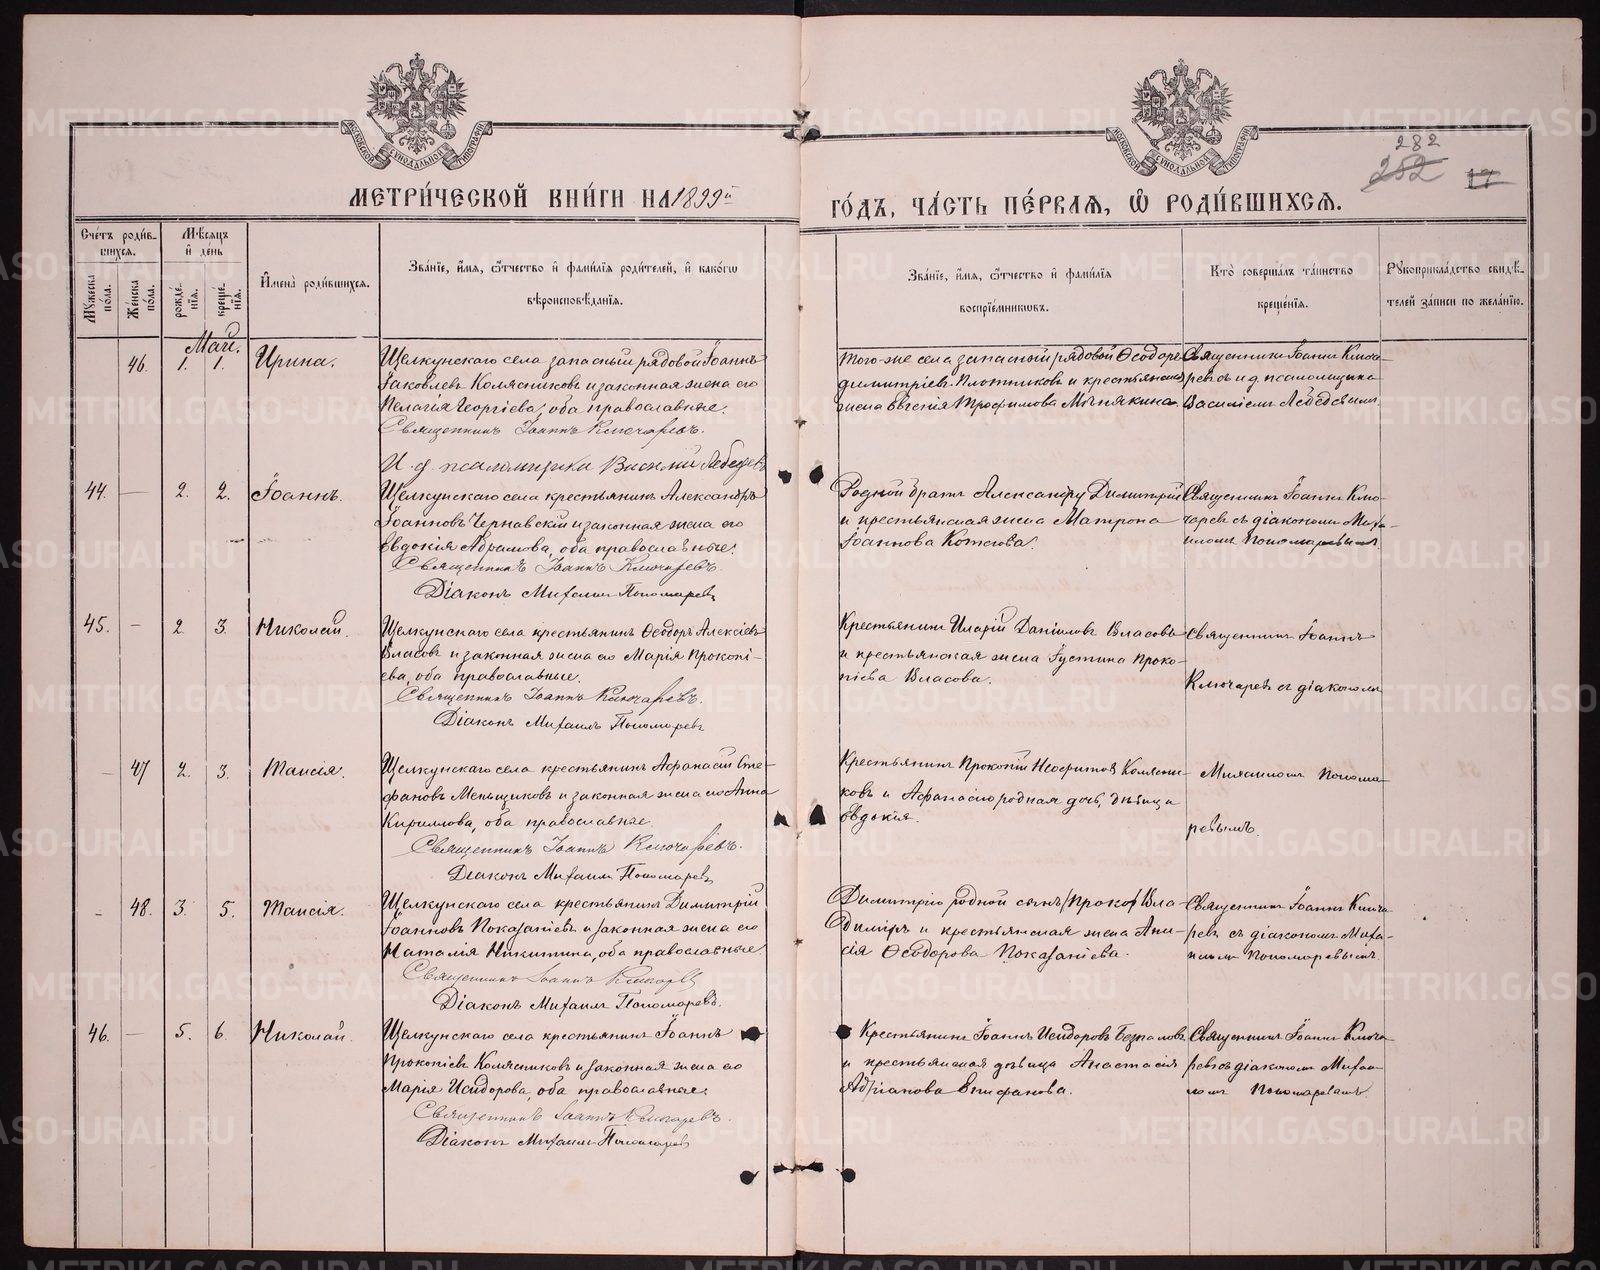 МЕТРИ́ЧЕСКОЙ КНИ́ГИ НА 1899й
ГО́ДЪ, ЧАСТЬ ПЕ́РВАѦ, Ѡ РОДИ́ВШИХСѦ.
282
282 17
Сче́тъ роди́в-
шихсѧ.
Мѣ́сѧцъ
и де́нь
Му́жеска
по́ла.
Же́нска
по́ла.
рожде́-
нїѧ.
креще́-
нїѧ.
И́мена роди́вшихсѧ.
Зва́нїе, и́мѧ, ѻ́тчество и фами́лїѧ роди́телей, и како́гѡ
вѣроисповѣ́данїѧ.
Зва́нїе, и́мѧ, ѻ́тчество и фами́лїѧ
воспрїе́мникѡвъ.
Кто̀ соверша́лъ та́инство
креще́нїѧ.
Рꙋкоприкла́дство свидѣ́-
телей за́писи по жела́нїю.
Маiй.
46. 1. 1. Ирина.
Щелкунскаго села запасный рядовой Іоаннъ
Іаковлевъ Колясниковъ и законная жена его
Пелагія Георгіева, оба православные.
Священникъ Іоаннъ Ключаревъ.
И. д. псаломщика Василій Лебедевъ
того-же села запасный рядовой Ѳеодоръ
Димитріевъ Плотниковъ и крестьянская
жена Евгенія Трофимова Мѣнякина.
Священникъ Іоаннъ Ключа-
ревъ съ и. д. псаломщика
Василіемъ Лебедевымъ.
44. — 2. 2. Іоаннъ.
Щелкунскаго села крестьянинъ Александръ
Іоанновъ Чернавскій и законная жена его
Евдокія Абрамова, оба православные.
Священникъ Іоаннъ Ключаревъ.
Діаконъ Михаилъ Пономаревъ
Родной братъ Александру Димитрій
и крестьянская жена Матрона
Іоаннова Котова.
Священникъ Іоаннъ Клю-
чаревъ съ діакономъ Миха-
иломъ Пономаревымъ.
45. — 2. 3. Николай.
Щелкунскаго села крестьянинъ Ѳеодоръ Алексіевъ
Власовъ и законная жена его Марія Прокопі-
ева, оба православные.
Священникъ Іоаннъ Ключаревъ.
Діаконъ Михаилъ Пономаревъ
Крестьянинъ Иларій Даніиловъ Власовъ
и крестьянская жена Іустина Проко-
піева Власова.
Священникъ Іоаннъ
Ключаревъ съ діакономъ
— 47 2. 3. Таисія.
Щелкунскаго села крестьянинъ Аѳанасій Сте-
фановъ Меньщиковъ и законная жена его Анна
Кириллова, оба православные.
Священникъ Іоаннъ Ключаревъ.
Діаконъ Михаилъ Пономаревъ
Крестьянинъ Прокопій Неофитовъ Колясни-
ковъ и Аѳанасію родная дочь, дѣвица
Евдокія.
Михаиломъ Понома-
ревымъ.
— 48. 3. 5. Таисія.
Щелкунскаго села крестьянинъ Димитрій
Іоанновъ Показаніевъ и законная жена его
Наталія Никитина, оба православные.
Священникъ Іоаннъ Ключаревъ
Діаконъ Михаилъ Пономаревъ.
Димитрію родной сынъ Вла-
диміръ и крестьянская жена Ани-
сія Ѳеодорова Показаніева.
Священникъ Іоаннъ Ключа-
ревъ съ діакономъ Миха-
иломъ Пономаревымъ
46. — 5. 6. Николай.
Щелкунскаго села крестьянинъ Іоаннъ
Прокопіевъ Колясниковъ и законная жена его
Марія Исидорова, оба православные.
Священникъ Іоаннъ Ключаревъ.
Діаконъ Михаилъ Пономаревъ
Крестьянинъ Іоаннъ Исидоровъ Безпаловъ
и крестьянская дѣвица Анастасія
Адріанова Епифанова.
Священникъ Іоаннъ Ключа-
ревъ съ діакономъ Михаи-
ломъ Пономаревымъ.
METRIKI.GASO-URAL.RU